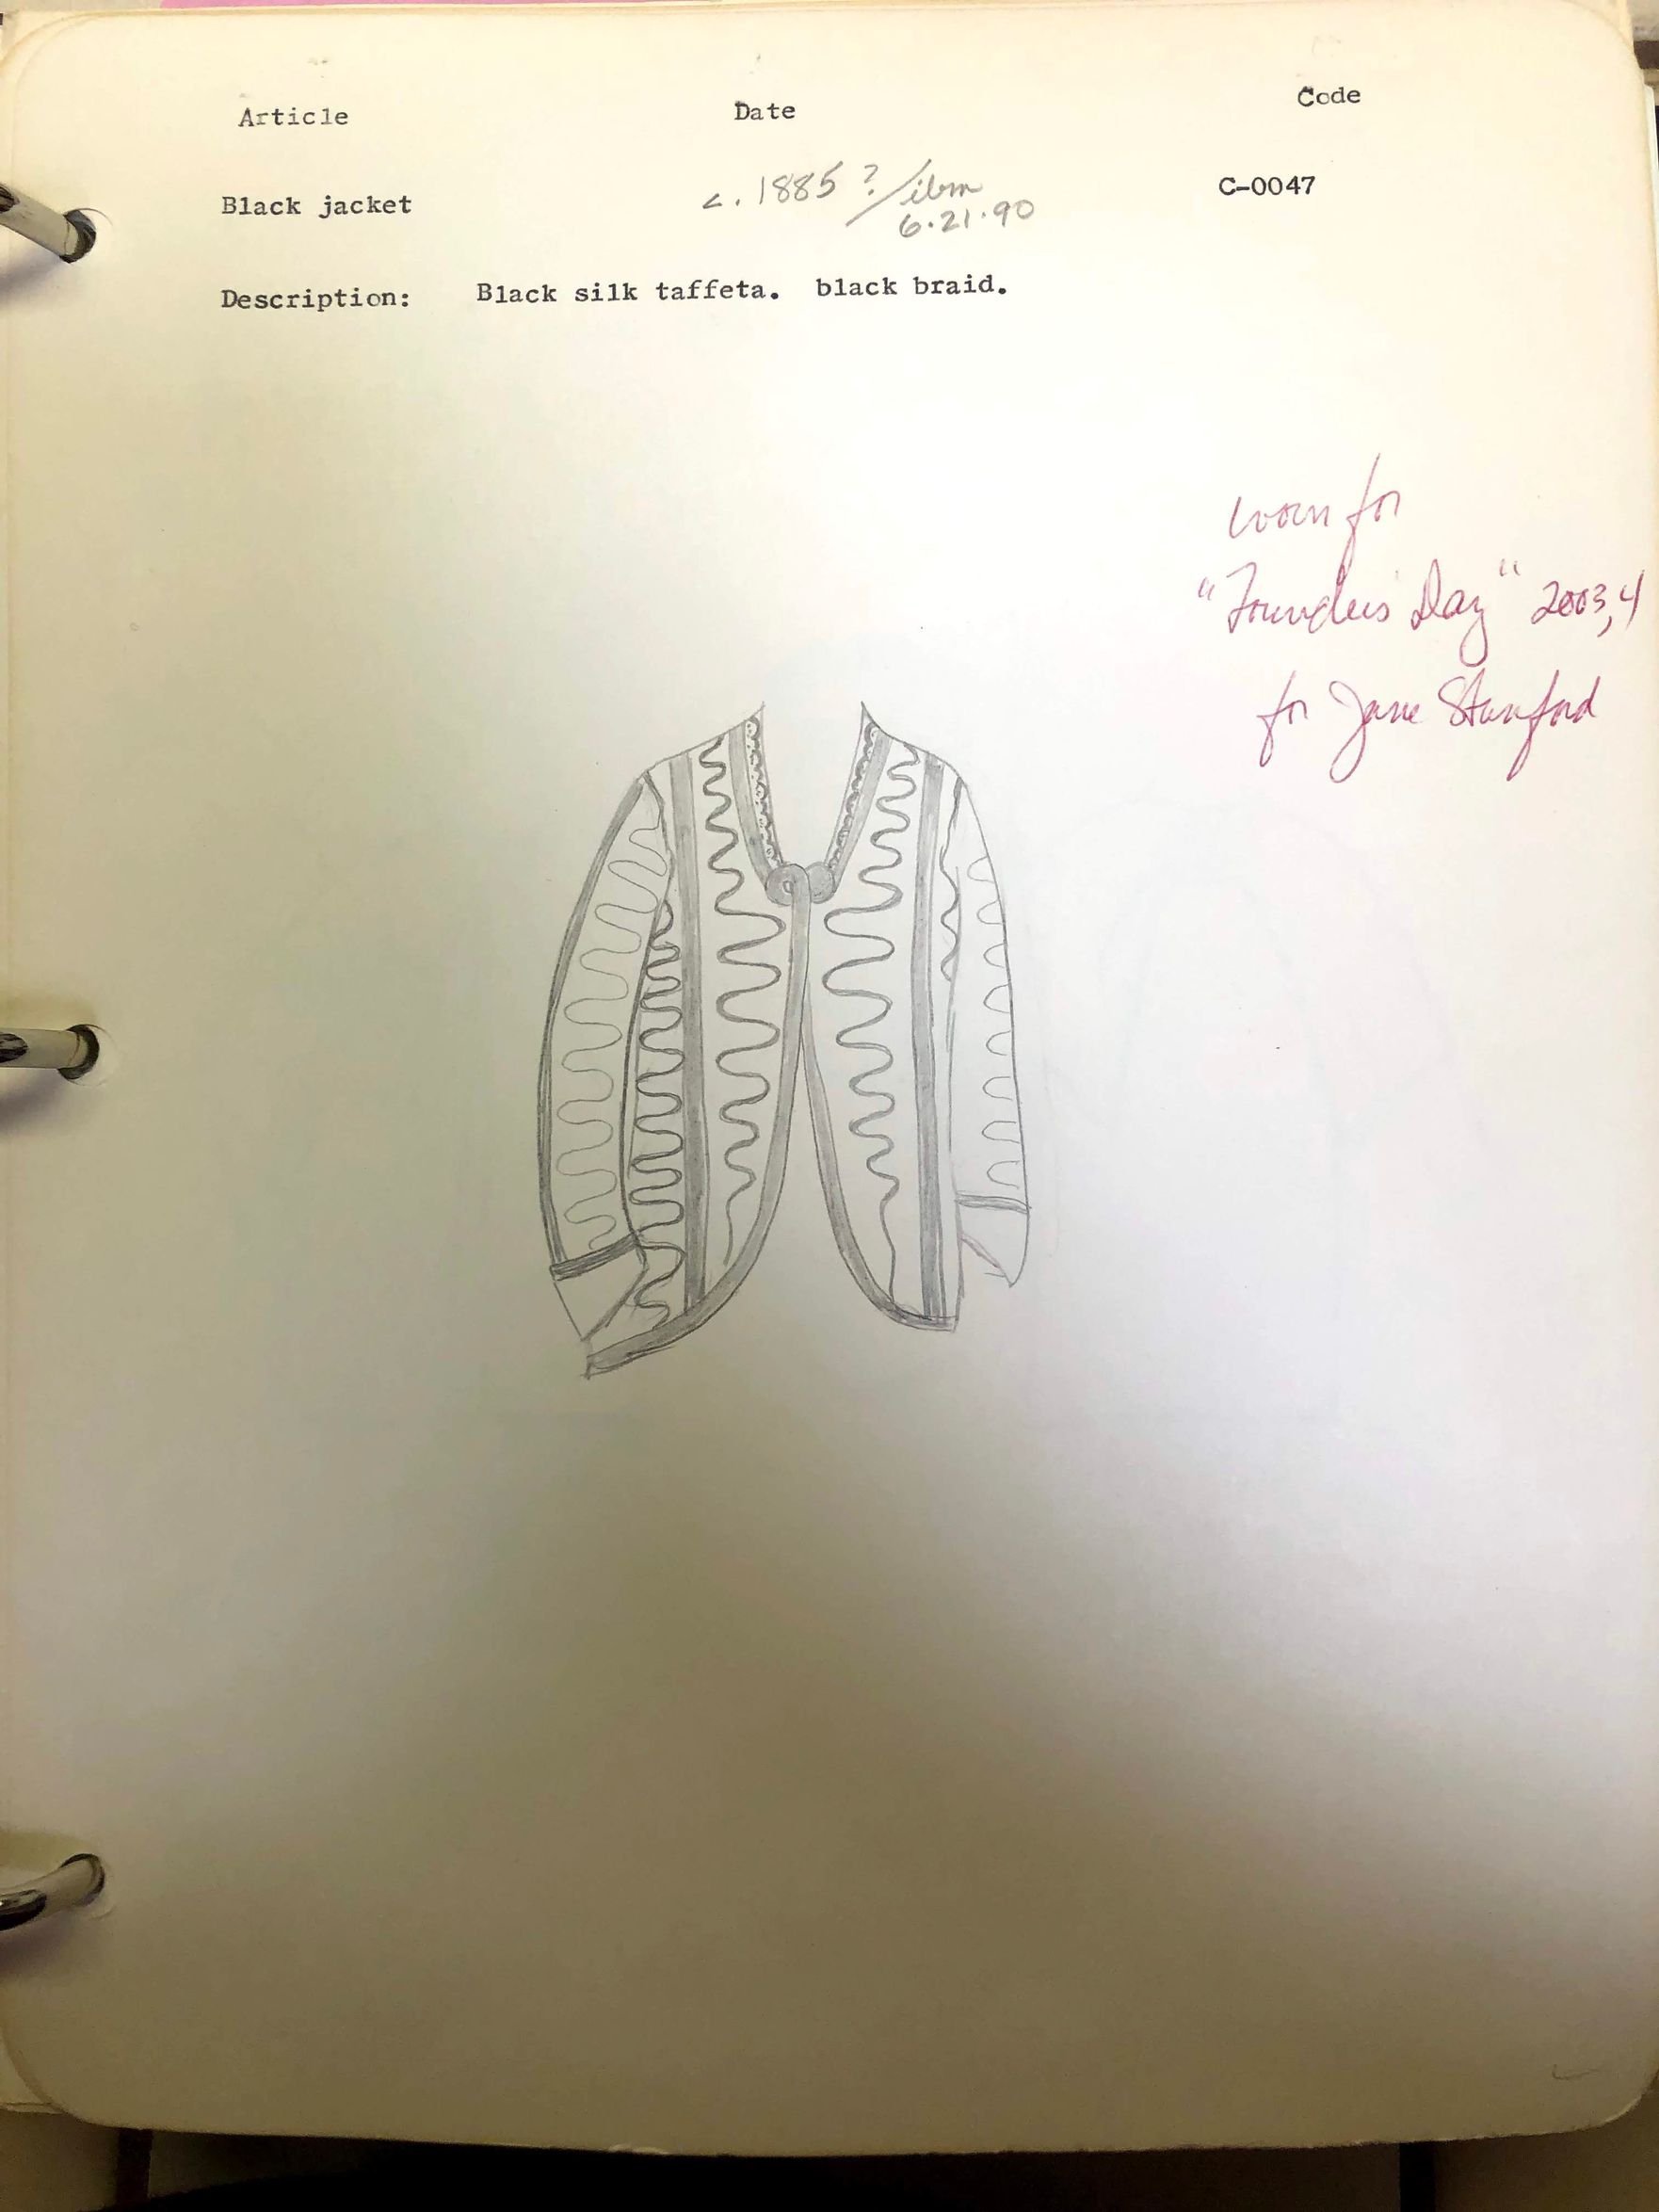 Article Date Code
Black jacket c. 1885 ? / ibm C-0047
6.21.90
Description: Black silk taffeta. black braid.
worn for
"Founders Day" 2003,4
for Jane Stanford